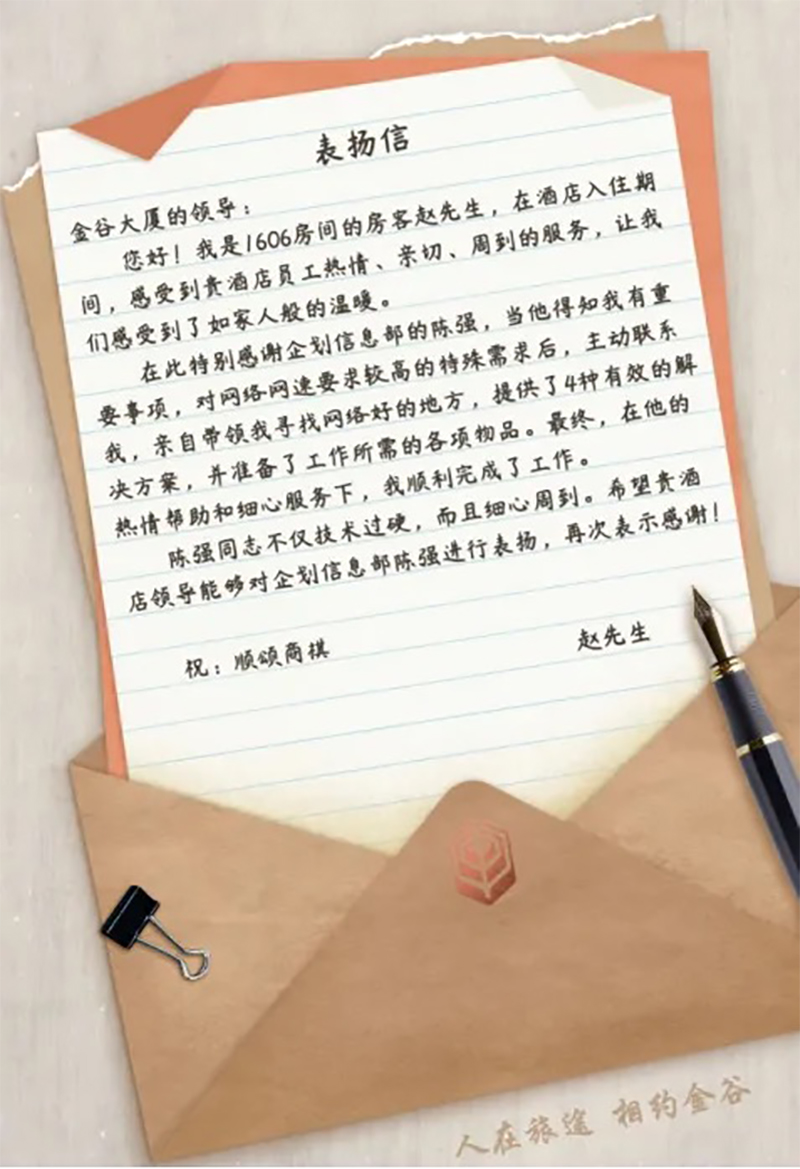 表扬信
金谷大厦的领导：
您好！我是1606房间的房客赵先生，在酒店入住期
间，感受到贵酒店员工热情、亲切、周到的服务，让我
们感受到了如家人般的温暖。
在此特别感谢企划信息部的陈强，当他得知我有重
要事项，对网络网速要求较高的特殊需求后，主动联系
我，亲自带领我寻找网络好的地方，提供了4种有效的解
决方案，并准备了工作所需的各项物品。最终，在他的
热情帮助和细心服务下，我顺利完成了工作。
陈强同志不仅技术过硬，而且细心周到。希望贵酒
店领导能够对企划信息部陈强进行表扬，再次表示感谢！
祝：顺颂商祺
赵先生
人在旅途 相约金谷